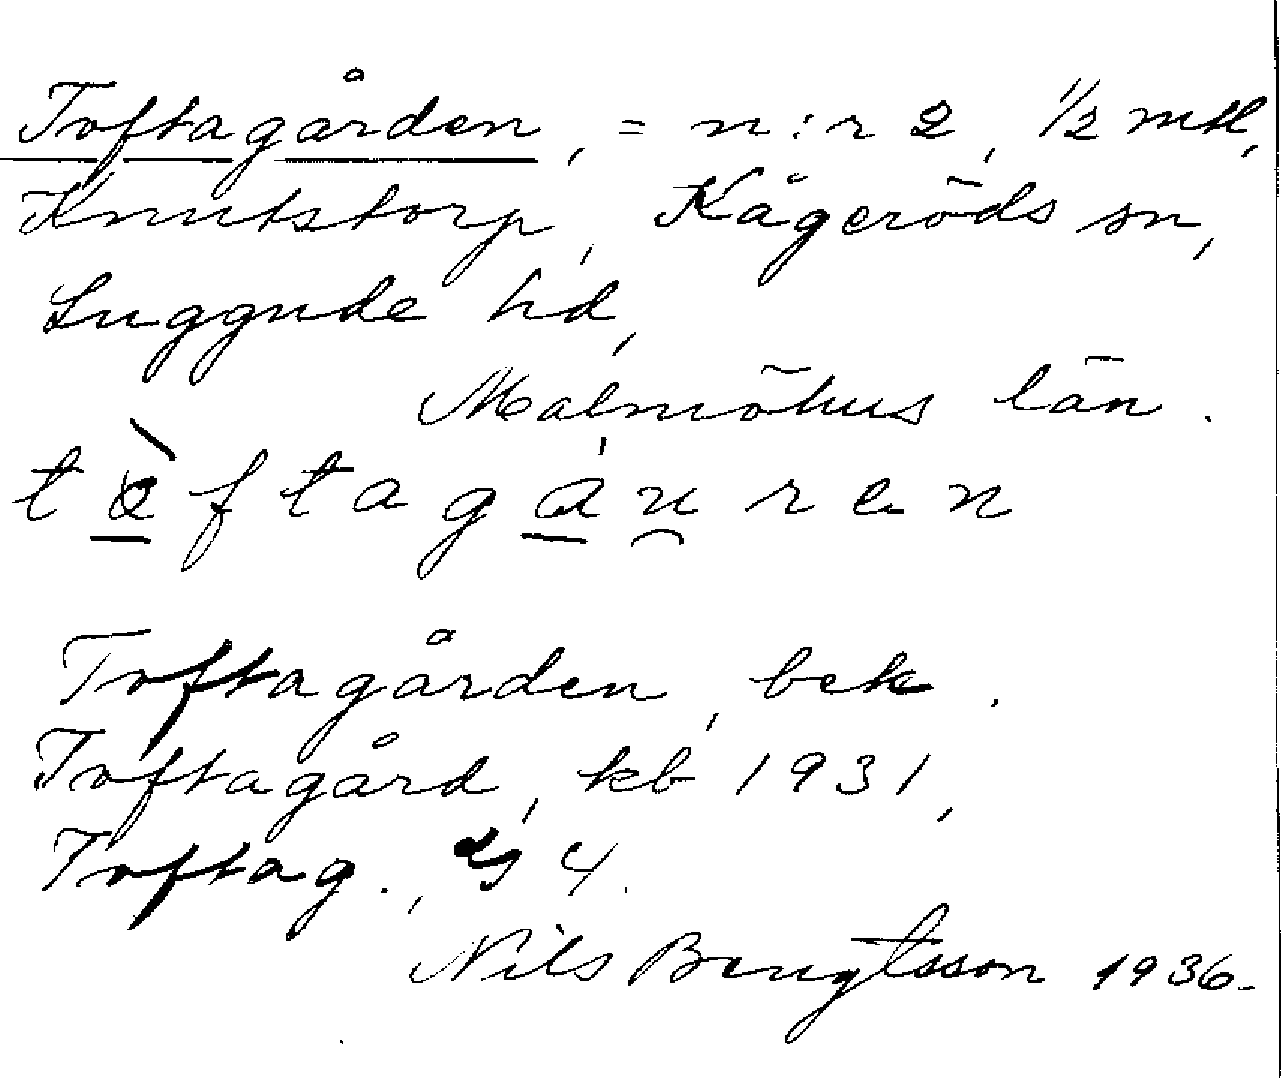 Toftagården, = n:r 2, 1/2 mtl,
Knutstorp, Kågeröds sn,
Luggude hd,
Malmöhus län.
tòftagáu̯ren
Toftagården, bek.
Toftagård, kb 1931,
Toftag., 4.
Nils Bengtsson 1936.